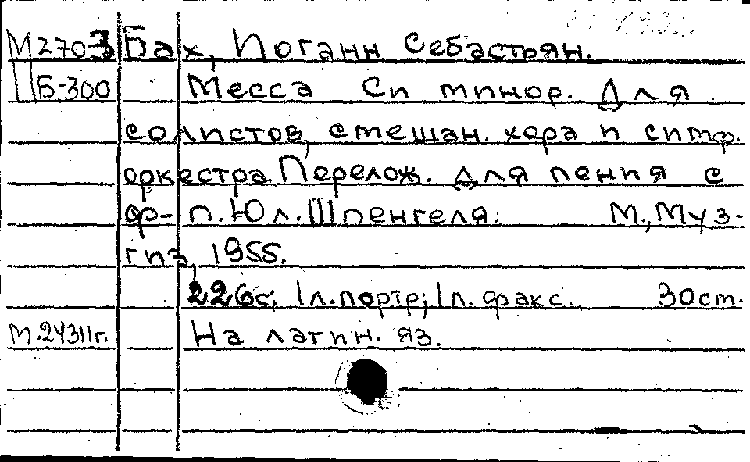 М2703 Бах, Иоганн Себастьян.
Ц Б-300 Месса Си минор. Для
солистов, смешан. хора и симф.
оркестра. Перелож. для пения с
ф-п. Юл. Шпенгеля. М., Муз-
гиз, 1955.
226с; 1л.портр; 1л. факс. 30см.
М.24311г. На латин. яз.